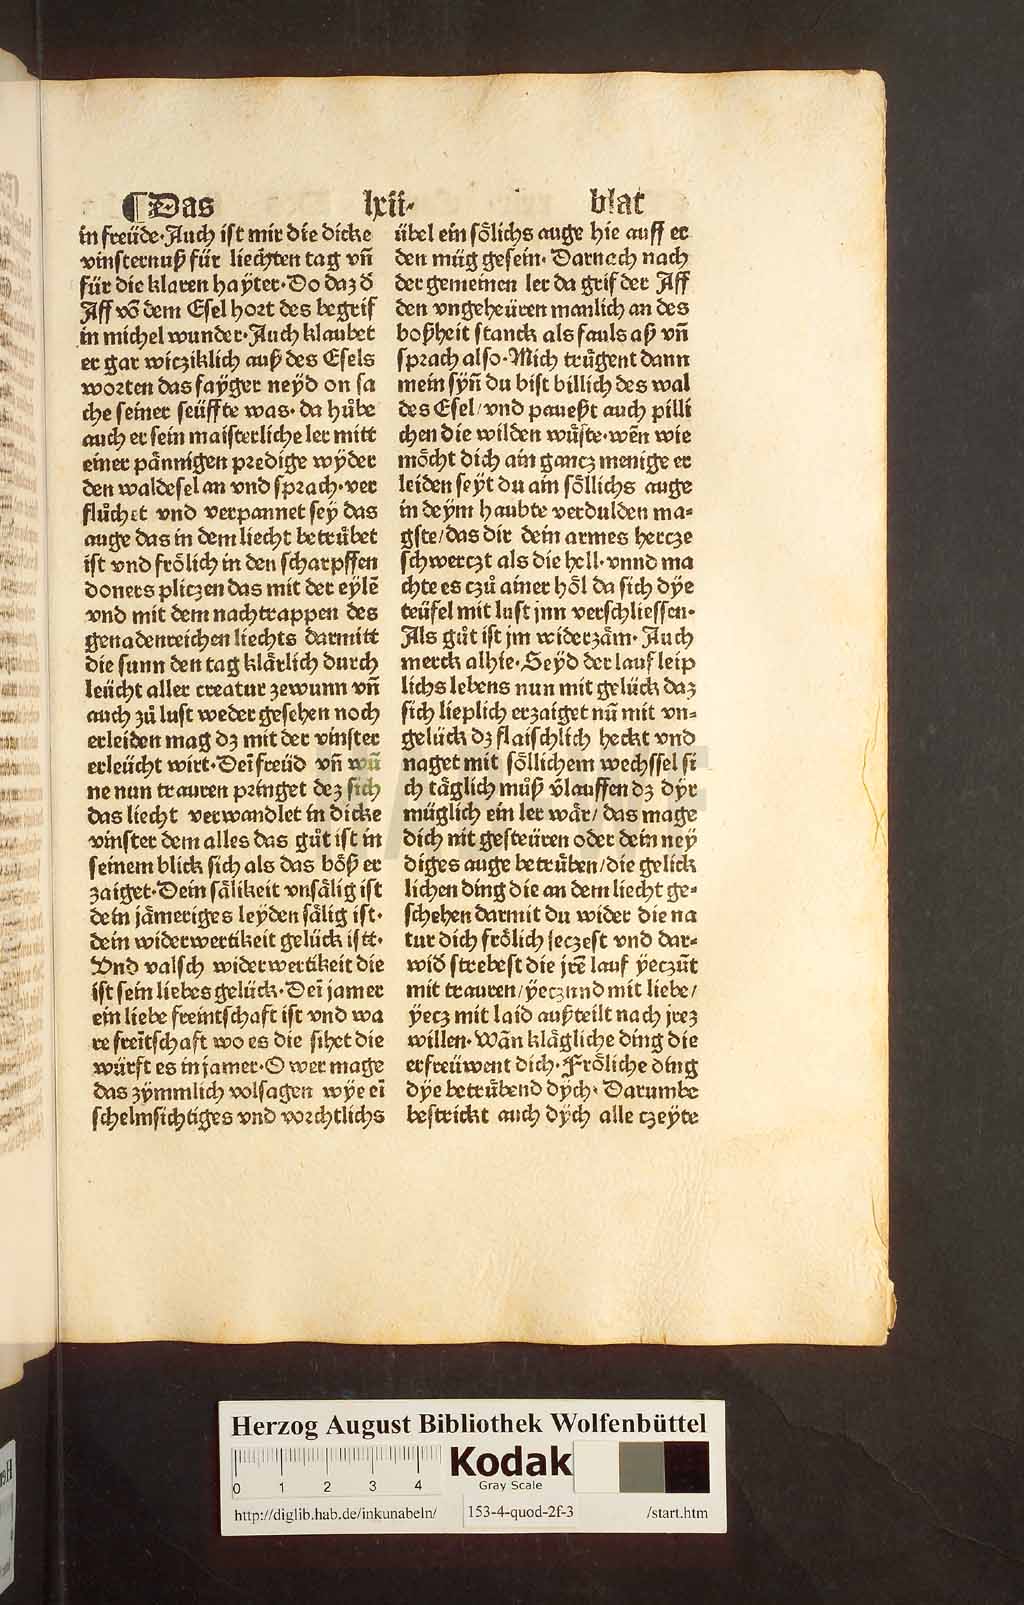 ¶Das lxii· blat
in freüde·Auch ist mir die dicke
vinsternuß für liechten tag vñ
für die klaren haÿter·Do daz ð
Aff võ dem Esel hort des begrif
in michel wunder·Auch klaubet
er gar wicziklich auß des Esels
worten das faÿger neÿd on sa
che seiner seüffte was· da hůbe
auch er sein maisterliche ler mitt
einer pännigen predige wÿder
den waldesel an vnd sprach·ver
flůchet vnd verpannet seÿ das
auge das in dem liecht betrůbet
ist vnd frölich in den scharpffen
doners pliczen das mit der eÿlē
vnd mit dem nachtrappen des
genadenreichen liechts darmitt
die sunn den tag klärlich durch
leücht aller creatur zewunn vñ
auch zů lust weder gesehen noch
erleiden mag dz mit der vinster
erleücht wirt·Dei freüd vñ wū
ne nun trauren pringet dez sich
das liecht verwandlet in dicke
vinster dem alles das gůt ist in
seinem blick sich als das böß er
zaiget·Dein sälikeit vnsälig ist
dein jämeriges leÿden sälig ist·
dein widerwertikeit gelück istt·
Vnd valsch widerwertikeit die
ist sein liebes gelück·Dei jamer
ein liebe freintschaft ist vnd wa
re freītschaft wo es die sihet die
würft es in jamer·O wer mage
das zÿmmlich volsagen wÿe eī
schelmsichtiges vnd vorchtlichs
übel ein sölichs auge hie auff er
den müg gesein· Darnach nach
der gemeinen ler da grif der Aff
den vngeheüren manlich an des
boßheit stanck als fauls aß vñ
sprach also·Mich trůgent dann
mein sÿñ du bist billich des wal
des Esel/vnd paueßt auch pilli
chen die wilden wůste·wēn wie
möcht dich ain gancz menige er
leiden seÿt du ain söllichs auge
in deÿm haubte verdulden ma⸗
gste/das dir dein armes hercze
schwerczt als die hell·vnnd ma
chte es czů ainer höl da sich dÿe
teüfel mit lust jnn verschliessen·
Als gůt ist jm widerzäm· Auch
merck alhie·Seÿd der lauf leip
lichs lebens nun mit gelück daz
sich lieplich erzaiget nū mit vn⸗
gelück dz flaischlich heckt vnd
naget mit söllichem wechssel si
ch täglich můß v̄lauffen dz dÿr
müglich ein ler wär/das mage
dich nit gesteüren oder dein neÿ
diges auge betrůben/die gelick
lichen ding die an dem liecht ge⸗
schehen darmit du wider die na
tur dich frölich jeczest vnd dar⸗
wið strebest die jrē lauf ÿeczūt
mit trauren/ÿeczund mit liebe/
ÿecz mit laid außteilt nach jrez
willen·Wān klägliche ding die
erfreüwent dich·Fröliche ding
dÿe betrůbend dÿch·Darumbe
bestrickt auch dÿch alle czeÿte
Herzog August Bibliothek Wolfenbüttel
0 1 2 3 4
Kodak
Gray Scale
http://diglib.hab.de/inkunabeln/ 153-4-quod-2f-3 /start.htm